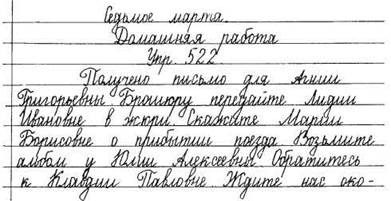 Седьмое марта.
Домашняя работа
Упр. 522
Получено письмо для Агнии
Григорьевны Брошюру передайте Лидии
Ивановне в жюри Скажите Марии
Борисовне о прибытии поезда Возьмите
альбом у Юлии Алексеевны Обратитесь
к Клавдии Павловне Ждите нас око-